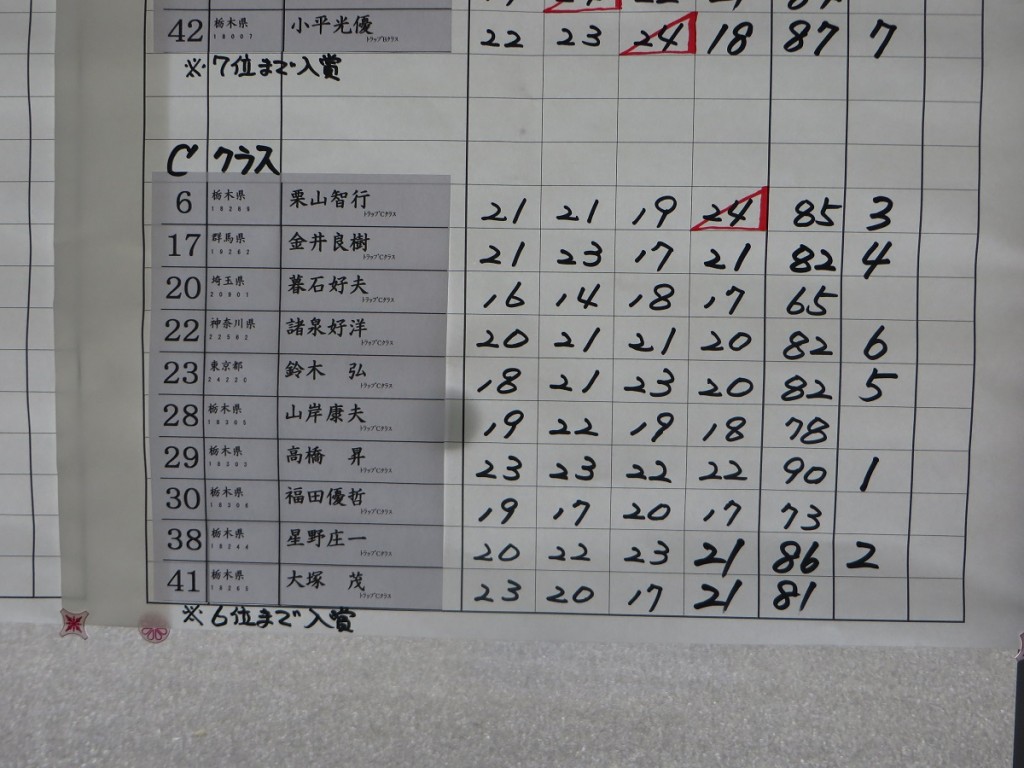 42 栃木県 小平光優 トラップBクラス 22 23 24 18 87 7
※7位まで入賞
C クラス
6 栃木県 栗山智行 トラップCクラス 21 21 19 24 85 3
17 群馬県 金井良樹 トラップCクラス 21 23 17 21 82 4
20 埼玉県 暮石好夫 トラップCクラス 16 14 18 17 65
22 神奈川県 諸泉好洋 トラップCクラス 20 21 21 20 82 6
23 東京都 鈴木 弘 トラップCクラス 18 21 23 20 82 5
28 栃木県 山岸康夫 トラップCクラス 19 22 19 18 78
29 栃木県 高橋 昇 トラップCクラス 23 23 22 22 90 1
30 栃木県 福田優哲 トラップCクラス 19 17 20 17 73
38 栃木県 星野庄一 トラップCクラス 20 22 23 21 86 2
41 栃木県 大塚 茂 トラップCクラス 23 20 17 21 81
※6位まで入賞